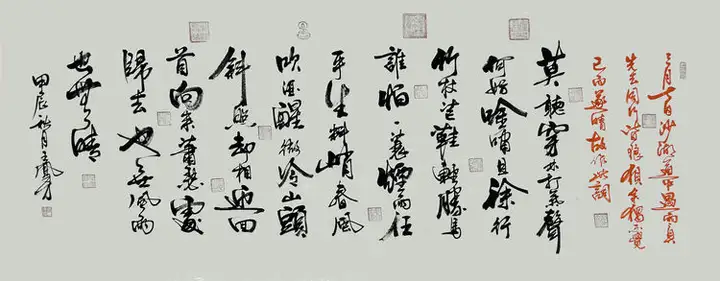 三月七日沙湖道中遇雨具
先去同行皆狼狽余獨不覺
已而遂晴故作此詞
莫聽穿林打葉聲
何妨吟嘯且徐行
竹杖芒鞋輕勝馬
誰怕一蓑煙雨任
平生料峭春風
吹酒醒微冷山頭
斜照却相迎回
首向來蕭瑟處
歸去也無風雨
也無晴
甲辰秋月